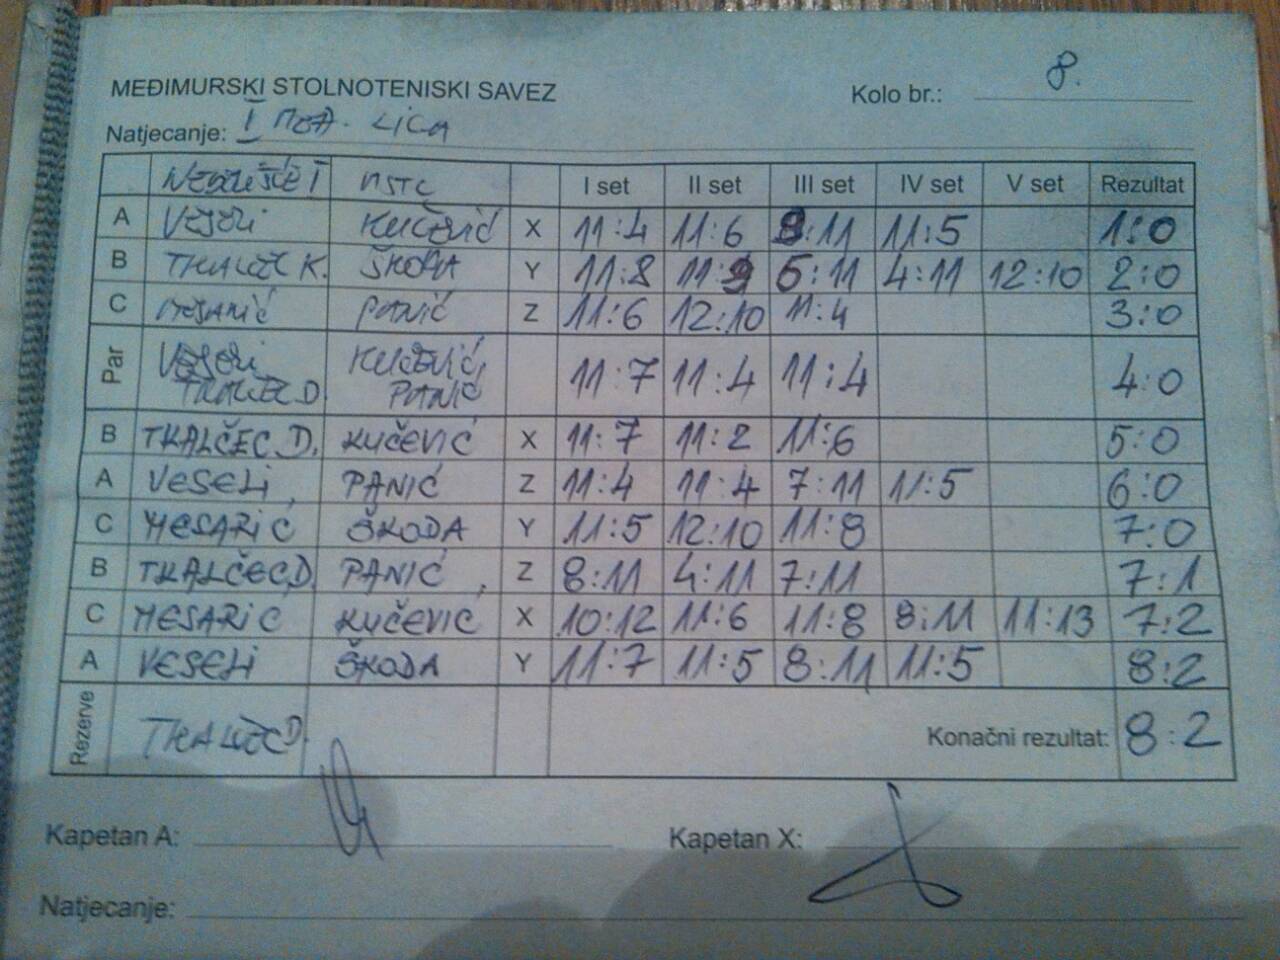 MEĐIMURSKI STOLNOTENISKI SAVEZ Kolo br.: 8.
Natjecanje: I MEĐ. LIGA
NEDELIŠĆE I MSTC I set II set III set IV set V set Rezultat
A VESELI KUČEVIĆ X 11:4 11:6 8:11 11:5 1:0
B TKALČEC K. ŠKODA Y 11:8 11:9 5:11 4:11 12:10 2:0
C MESARIĆ PANIĆ Z 11:6 12:10 11:4 3:0
Par VESELI KUČEVIĆ, 11:7 11:4 11:4 4:0
TKALČEC D. PANIĆ
B TKALČEC D. KUČEVIĆ X 11:7 11:2 11:6 5:0
A VESELI, PANIĆ Z 11:4 11:4 7:11 11:5 6:0
C MESARIĆ ŠKODA Y 11:5 12:10 11:8 7:0
B TKALČEC D. PANIĆ, Z 8:11 4:11 7:11 7:1
C MESARIĆ KUČEVIĆ X 10:12 11:6 11:8 8:11 11:13 7:2
A VESELI ŠKODA Y 11:7 11:5 8:11 11:5 8:2
Rezerve TKALČEC D. Konačni rezultat: 8:2
Kapetan A: Kapetan X:
Natjecanje: